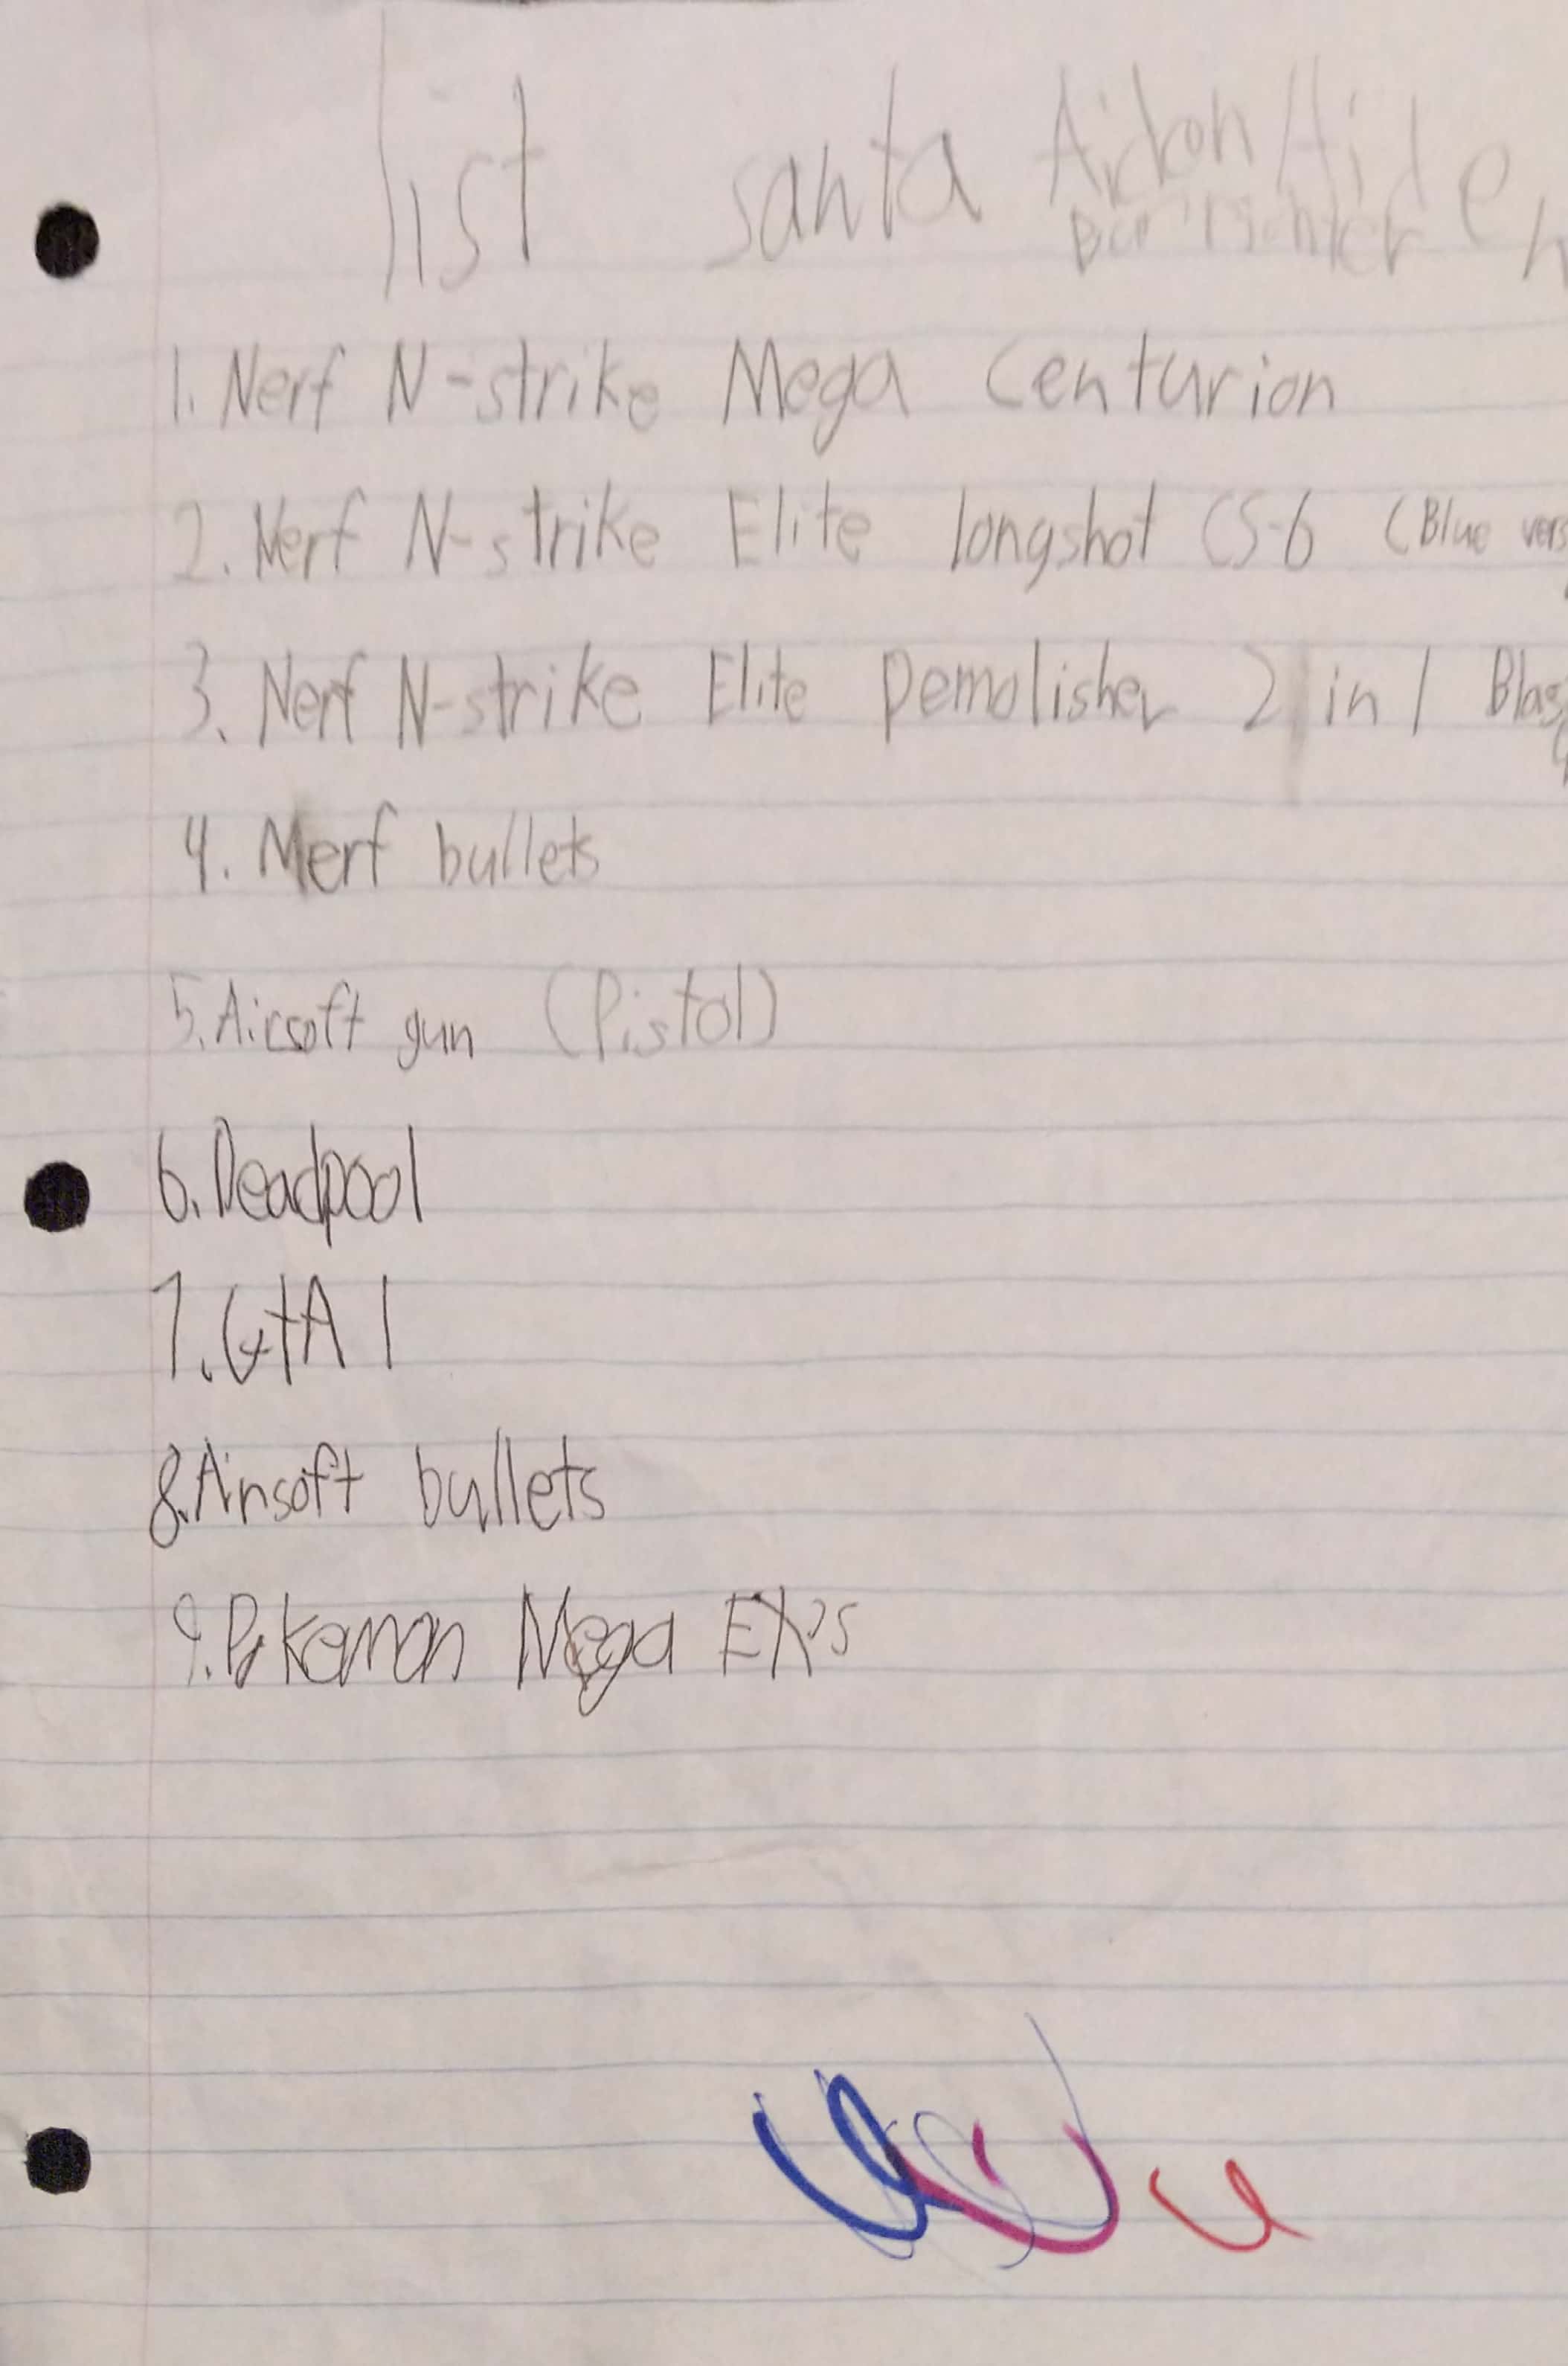 list santa Aidon Aiden
1. Nerf N-strike Mega Centurion
2. Nerf N-strike Elite longshot CS-6 (Blue vers
3. Nerf N-strike Elite Demolisher 2 in 1 Blas
4. Nerf bullets
5. Airsoft gun (Pistol)
6. Deadpool
7. GtA 1
8. Airsoft bullets
9. Pokemon Mega EX's